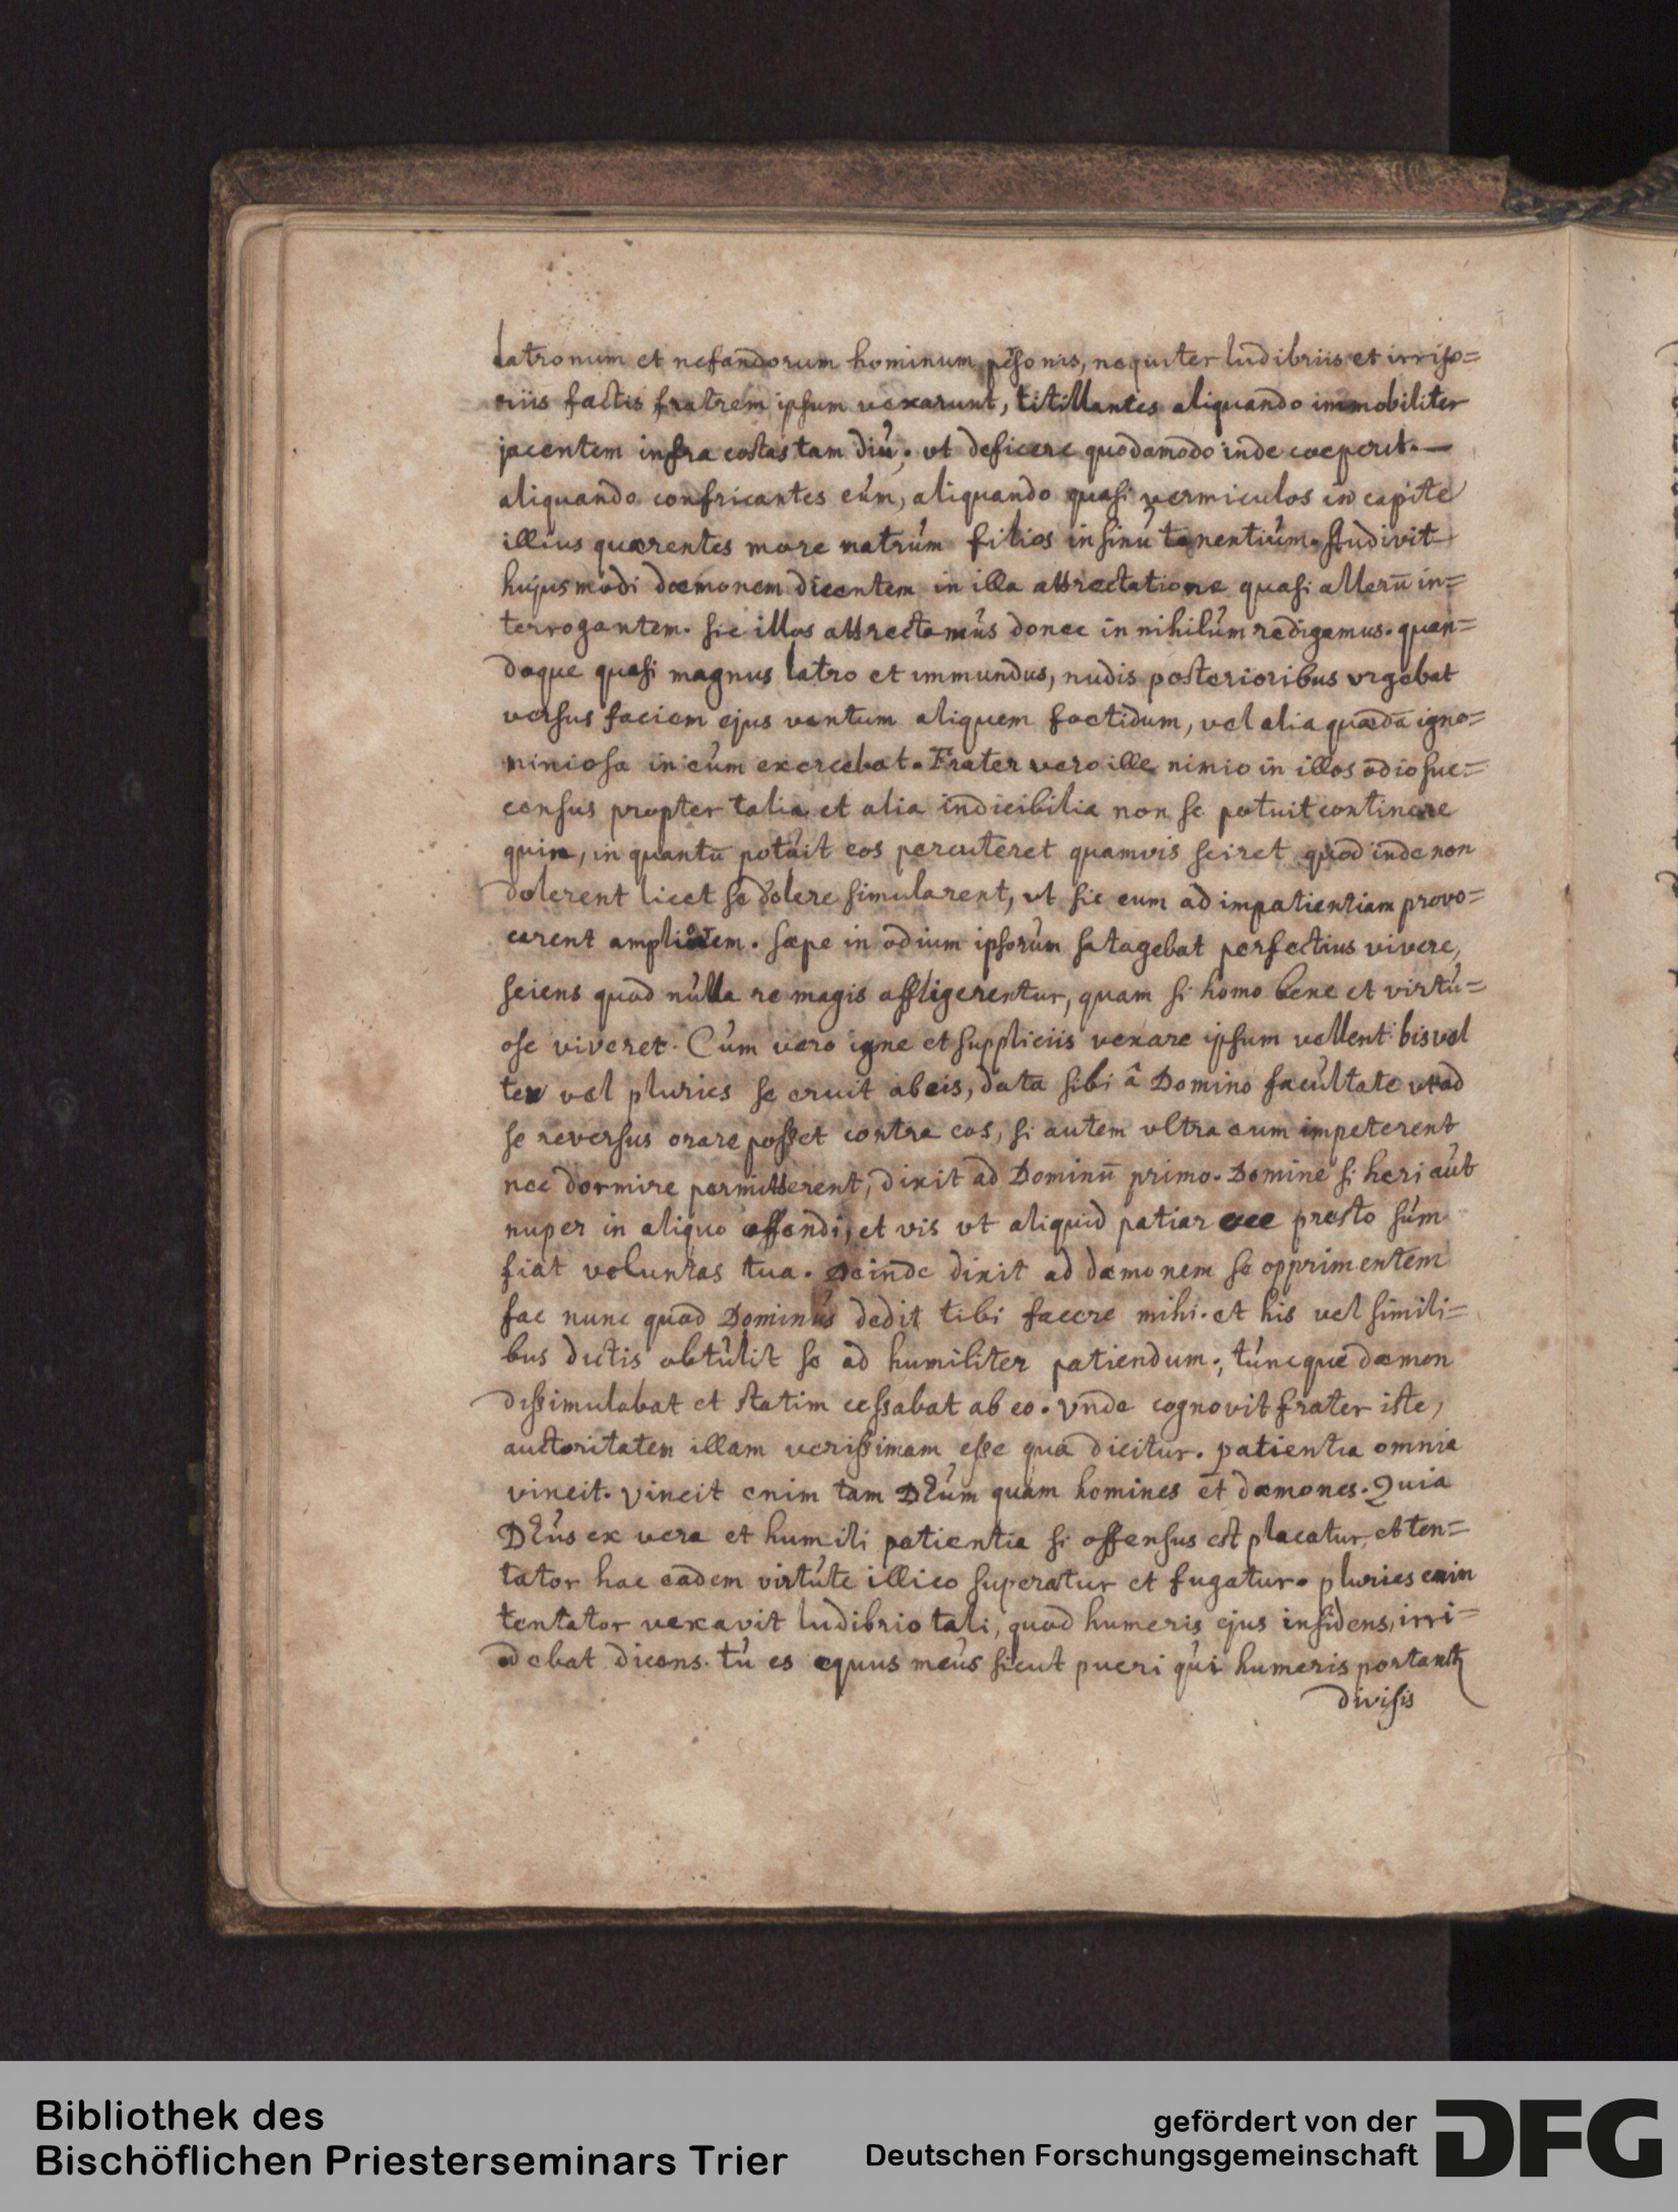 latronum et nefandorum hominum psonis, nequiter ludibriis et irriso=
riis factis fratrem ipsum vexarunt, titillantes aliquando immobiliter
jacentem infra costas tam diú; vt deficere quodamodo inde coeperit.—
aliquando confricantes eúm, aliquando quasi vermiculos in capite
illius quaerentes more matrúm filios in sinú tenentiúm. Audivit
hujusmodi daemonem dicentem in illa attrectatione quasi alterū in=
terrogantem. sic illos attrectamús donec in nihilúm redigamus. quan=
doque quasi magnus latro et immundus, nudis posterioribus vrgebat
versus faciem ejus ventum aliquem foetidum, vel alia quaedā igno=
miniosa in eúm exercebat. Frater vero ille nimio in illos odio suc=
census propter talia et alia indicibilia non se potuit continere
quin, in quantū potúit eos percuteret quamvis sciret quod inde non
dolerent licet se dolere simularent, vt sic eum ad impatientiam provo=
carent ampliorem. saepe in odium ipsorúm satagebat perfectius vivere,
sciens quod núlla re magis affligerentur, quam si homo bene et virtú=
ose viveret. Cúm vero igne et suppliciis vexare ipsum vellent bis vel
ter vel pluries se eruit ab eis, data sibi â Domino facúltate vt ad
se reversus orare posset contra eos, si autem vltra eum impeterent
nec dormire permitterent, dixit ad Dominū primo. Domine si heri aút
nuper in aliquo offendi, et vis vt aliquid patiar ecce presto súm
fiat voluntas tua. Deinde dixit ad daemonem se opprimentem
fac nunc quod Dominús dedit tibi facere mihi. et his vel simili=
bus dictis obtúlit se ad humiliter patiendum; túncque daemon
dissimulabat et statim cessabat ab eo. Vnde cognovit frater iste,
auctoritatem illam verissimam esse qua dicitur. patientia omnia
vincit. vincit enim tam DEúm quam homines et daemones. Quia
DEús ex vera et humili patientia si offensus est placatur, et ten=
tator hac eadem virtúte illico superatur et fugatur. pluries enim
tentator vexavit ludibrio tali, quod humeris ejus insidens, irri=
debat dicens. tú es equus meús sicut pueri qúi humeris portantʒ
divisis
Bibliothek des
Bischöflichen Priesterseminars Trier
gefördert von der
Deutschen Forschungsgemeinschaft
DFG